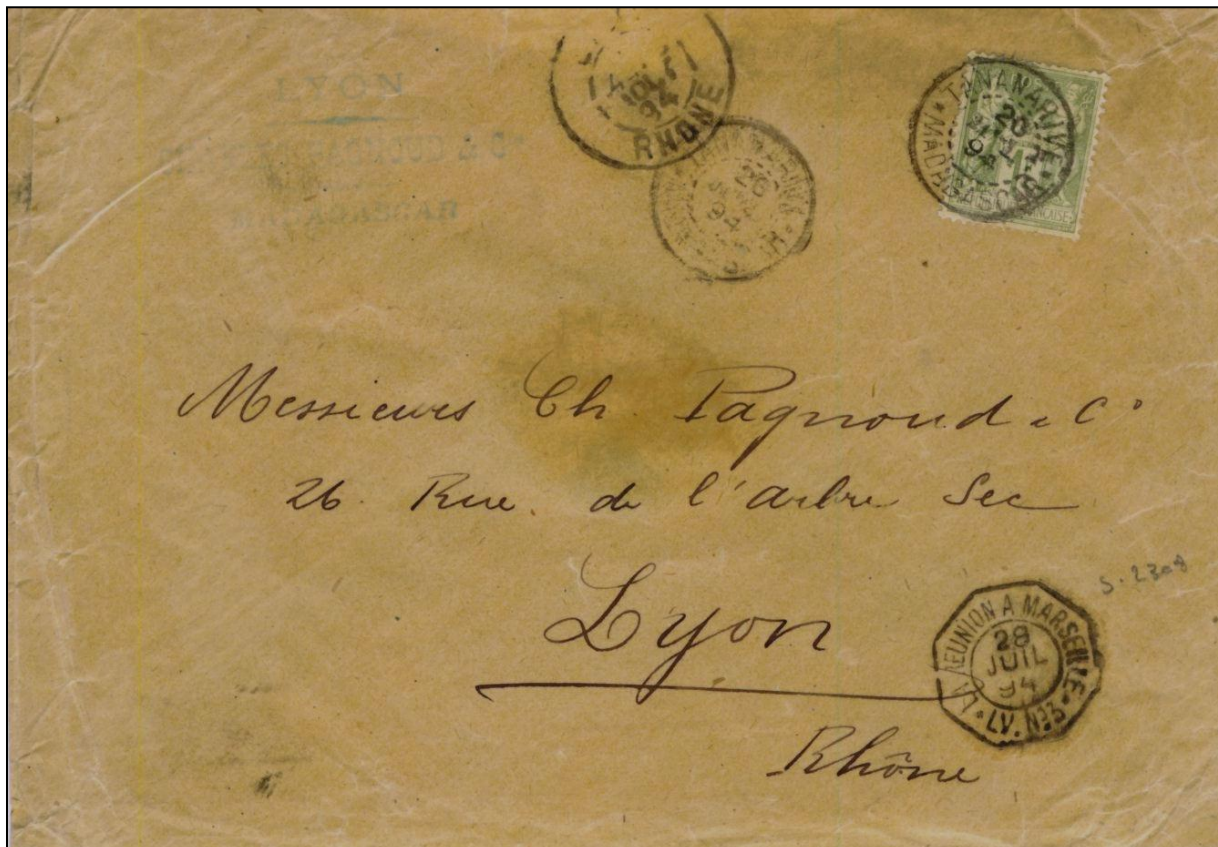 LYON
& Cie
MADAGASCAR
RHONE
94
94
TANANARIVE
20
94
MADAGASCAR
Messieurs Ch. Pagnoud & Co
26. Rue de l'arbre Sec
Lyon
Rhône
S. 2308
LA REUNION A MARSEILLE
28
JUIL
94
LV. No3